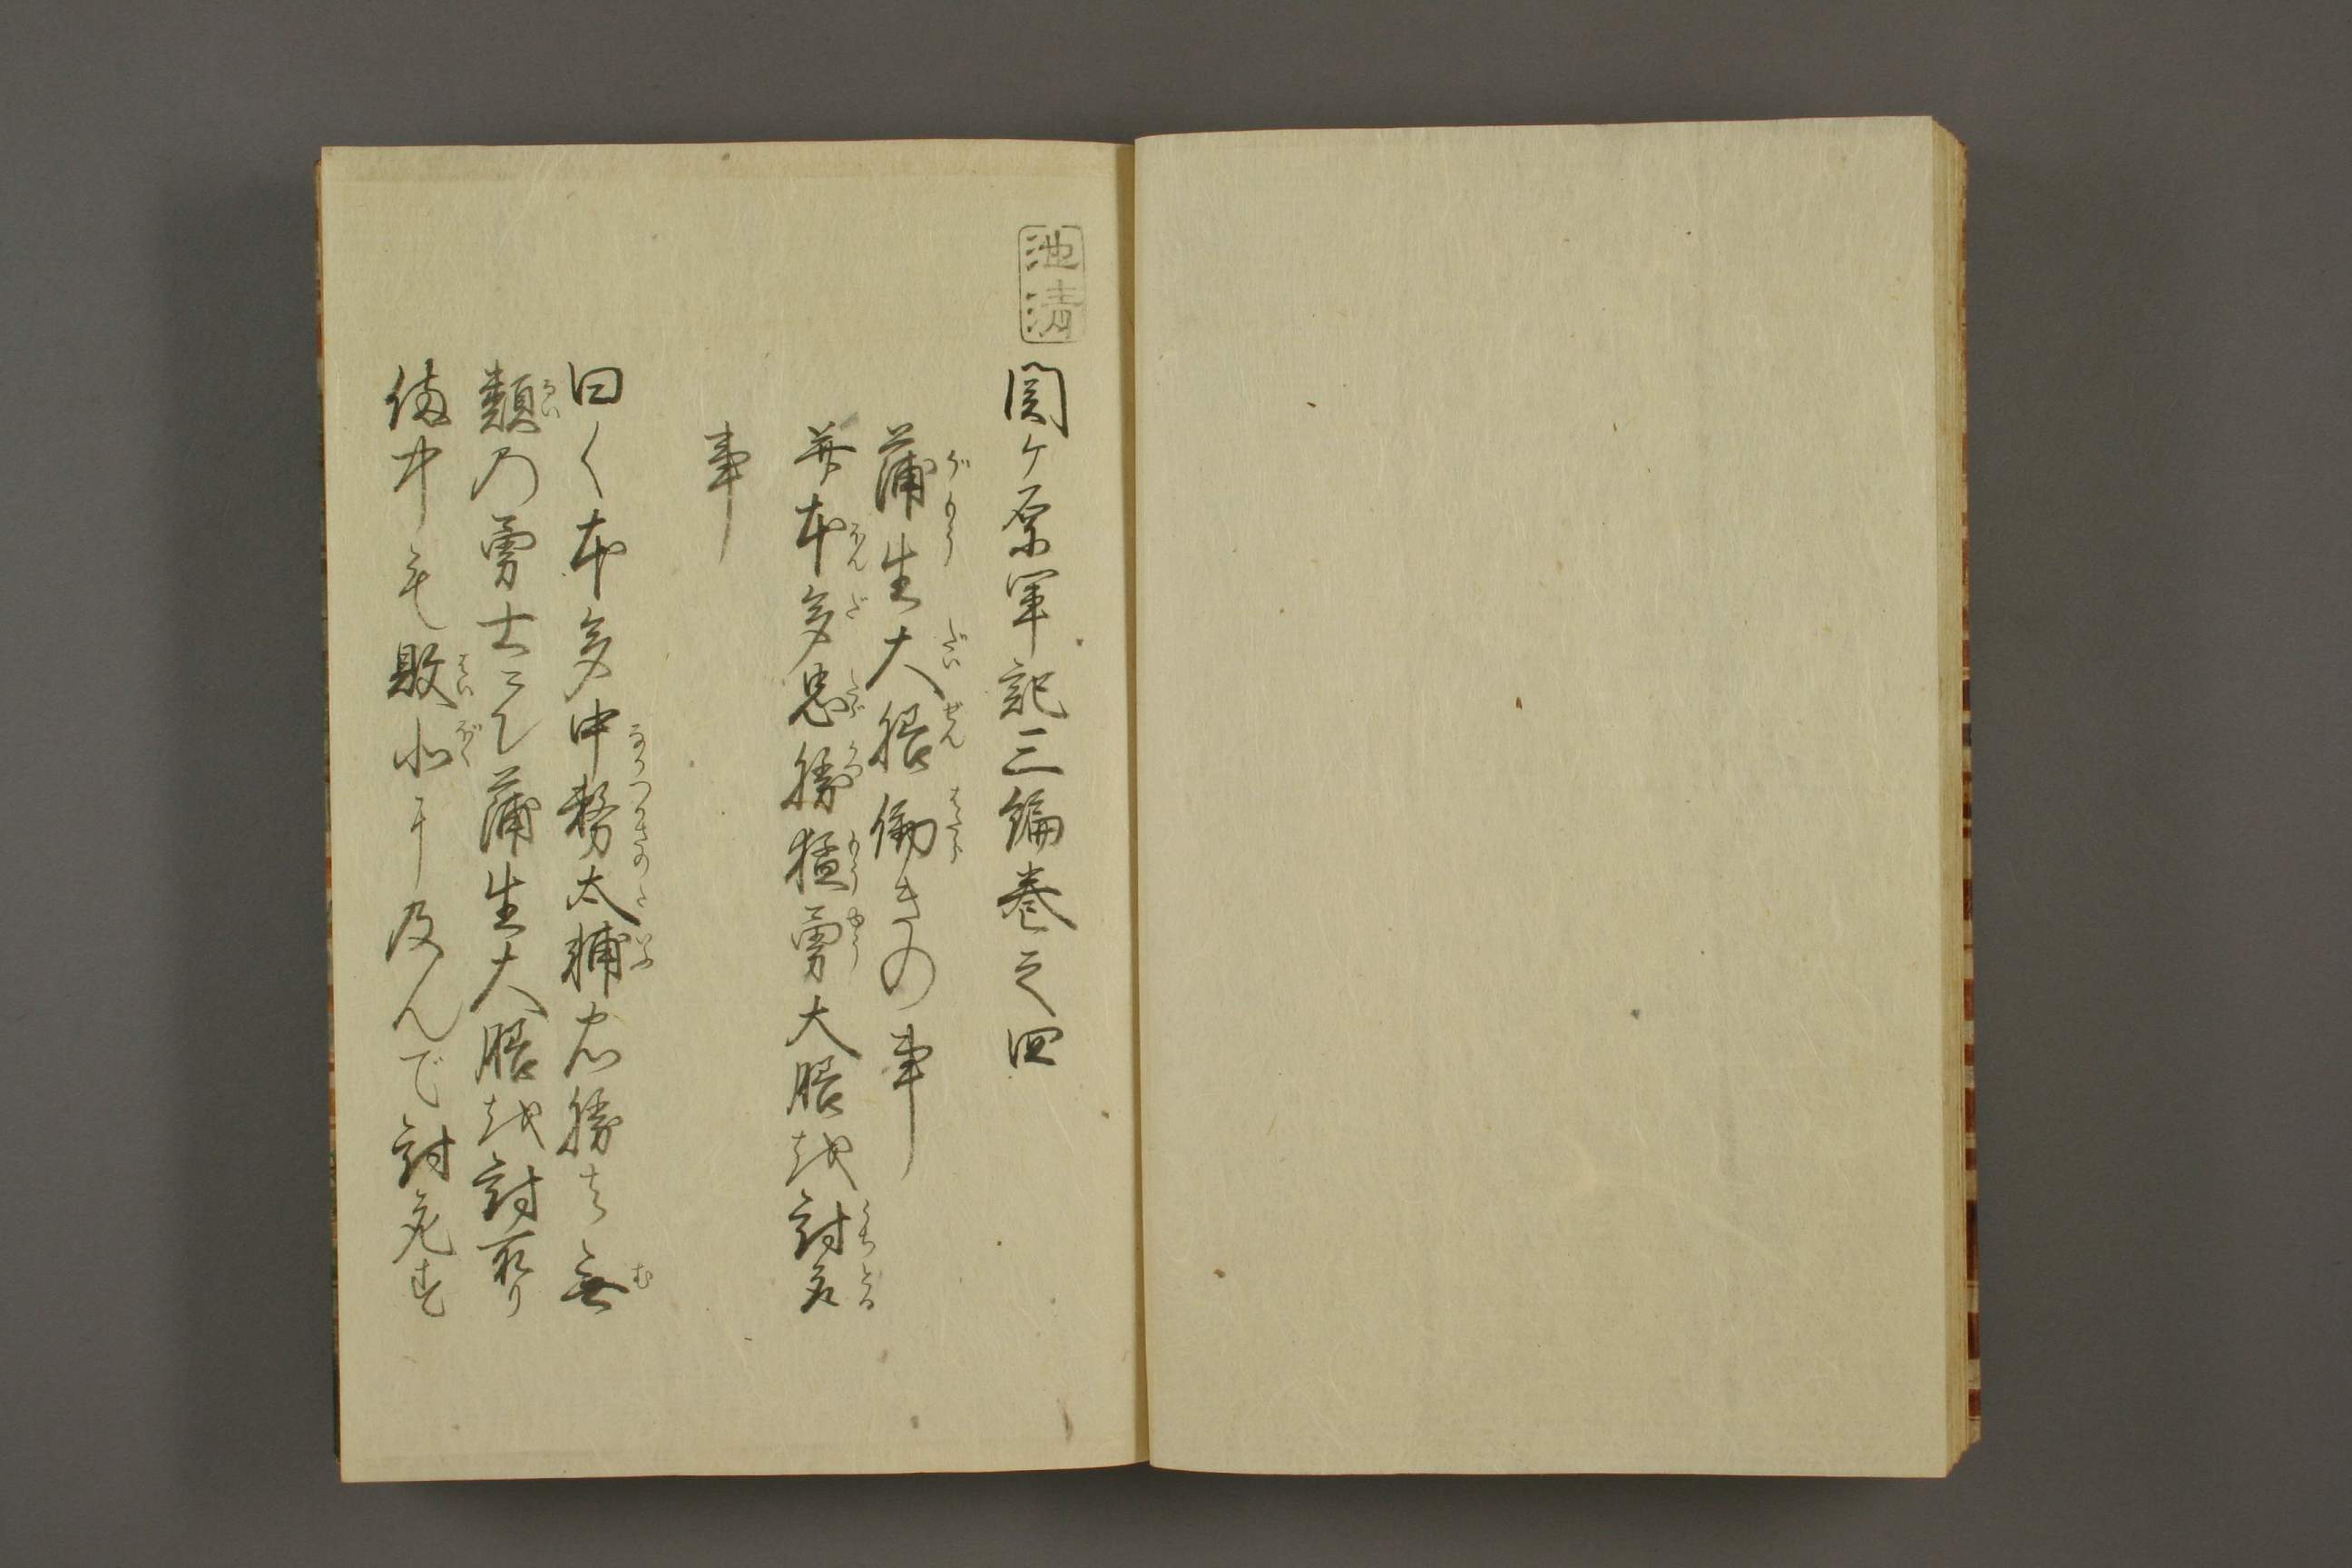 池清
関ヶ原軍記三編巻之四
蒲生大膳働きの事
并本多忠勝猛勇大膳越討取
事
曰く本多中務太輔忠勝は無
類乃勇士にて蒲生大膳越討取り
備中も敗北に及んで討死す